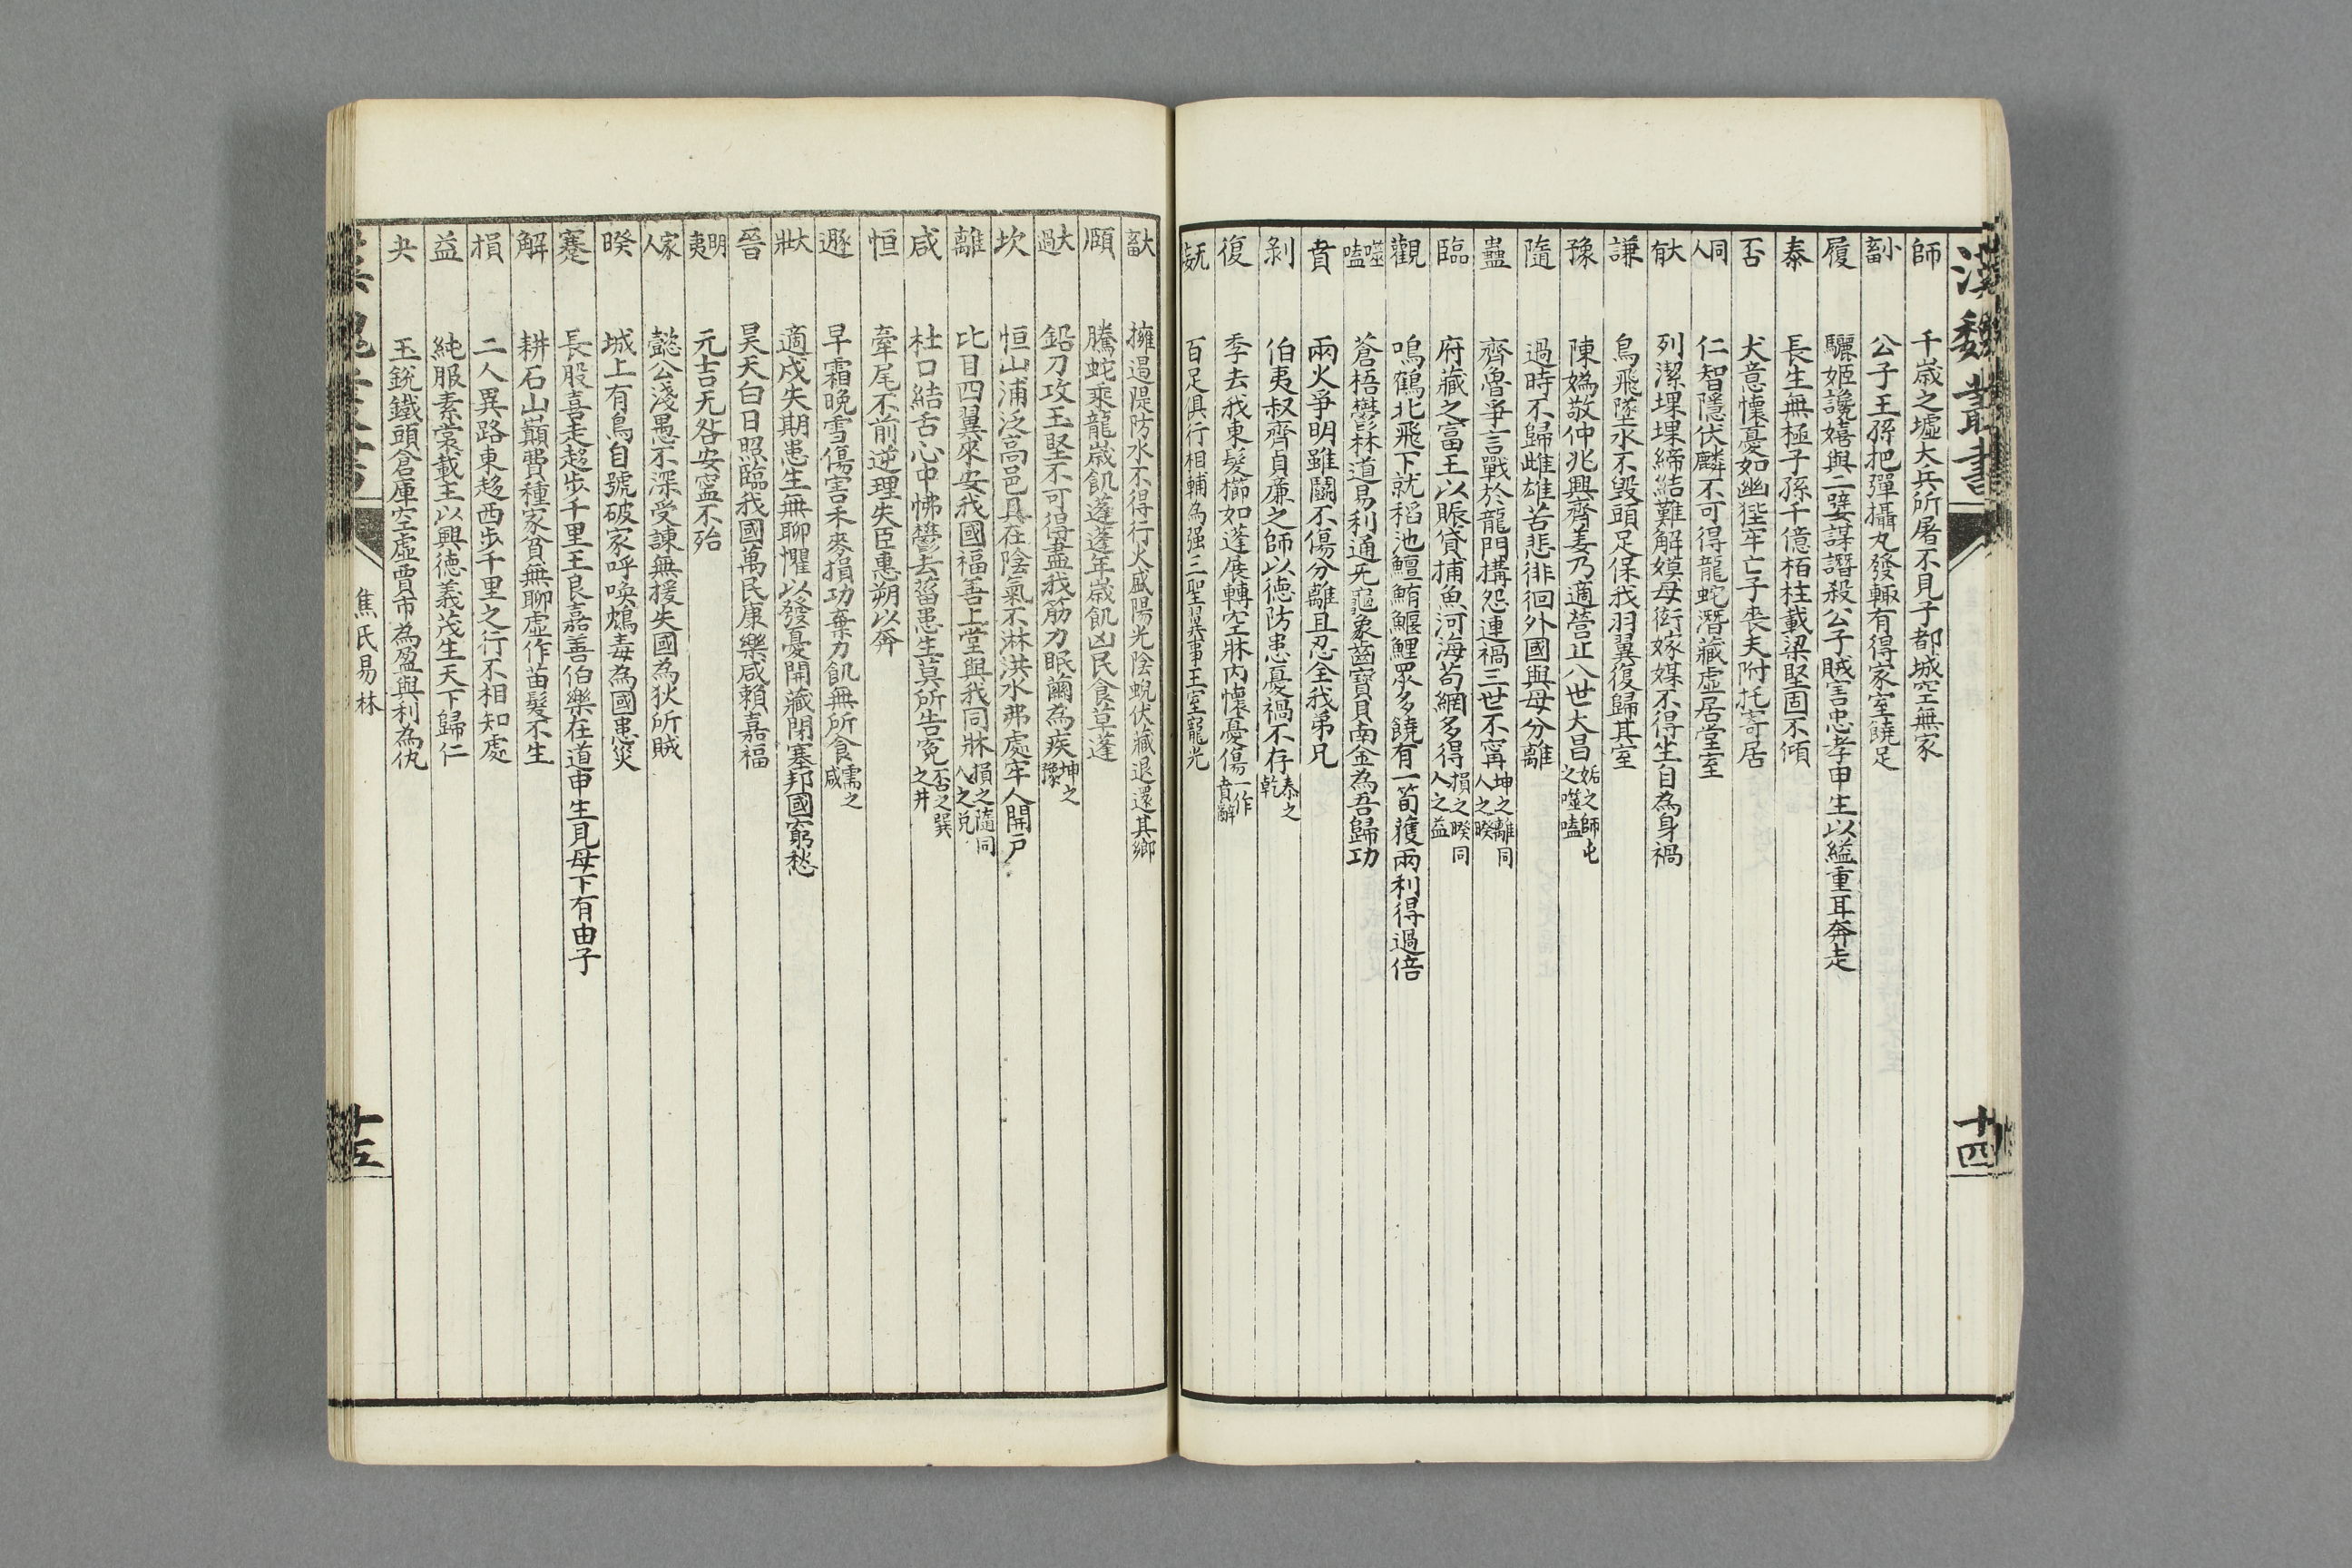 漢魏叢書
十四
師 千歲之墟大兵所屠不見子都城空無家
小畜 公子王孫把彈攝丸發輙有得家室饒足
履 驪姬讒嬉與二嬖謀譖殺公子賊害忠孝申生以縊重耳奔走
泰 長生無極子孫千億栢柱載梁堅固不傾
否 犬意懷憂如幽狴牢亡子喪夫附托寄居
同人 仁智隱伏麟不可得龍蛇潛藏虛居堂室
大有 列潔堁堁締結難解嫫母衒嫁媒不得生自為身禍
謙 鳥飛墜水不毀頭足保我羽翼復歸其室
豫 陳媯敬仲兆興齊姜乃適營丘八世大昌姤之師屯之噬嗑
隨 過時不歸雌雄苦悲徘徊外國與母分離
蠱 齊魯爭言戰於龍門搆怨連禍三世不寗坤之離同人之睽
臨 府藏之富王以賑貸捕魚河海茍網多得損之睽同人之益
觀 鳴鶴北飛下就稻池鱣鮪鰋鯉眾多饒有一笱獲兩利得過倍
噬嗑 蒼梧鬱林道易利通元龜象齒寶貝南金為吾歸功
賁 兩火爭明雖鬬不傷分離且忍全我弟兄
剝 伯夷叔齊貞廉之師以德防患憂禍不存泰之乾
復 季去我東髮櫛如蓬展轉空牀內懷憂傷一作賁辭
无妄 百足俱行相輔為強三聖翼事王室寵光
大畜 擁遏隄防水不得行火盛陽光陰蜺伏藏退還其鄉
頤 騰蛇乘龍歲飢蓬蓬年歲飢凶民食草蓬
大過 鉛刀攻玉堅不可得盡我筋力眠繭為疾坤之豫
坎 恒山浦泛高邑具在陰氣不淋洪水弗處牢人開戶
離 比目四翼來安我國福善上堂與我同牀損之隨同人之兌
咸 杜口結舌心中怫鬱去菑患生莫所告寃否之巽之井
恒 牽尾不前逆理失臣惠朔以奔
遯 早霜晚雪傷害禾麥損功棄力飢無所食需之咸
大壯 適戍失期患生無聊懼以發憂開藏閉塞邦國窮愁
晉 昊天白日照臨我國萬民康樂咸賴嘉福
明夷 元吉无咎安寍不殆
家人 懿公淺愚不深受諫無援失國為狄所賊
睽 城上有烏自號破家呼喚鴆毒為國患災
蹇 長股喜走趍步千里王良嘉善伯樂在道申生見母下有由子
解 耕石山巔費種家貧無聊虛作苗髮不生
損 二人異路東趍西步千里之行不相知處
益 純服素裳載主以興德義茂生天下歸仁
夬 玉銳鐵頭倉庫空虛賈市為盈與利為仇
焦氏易林
十五